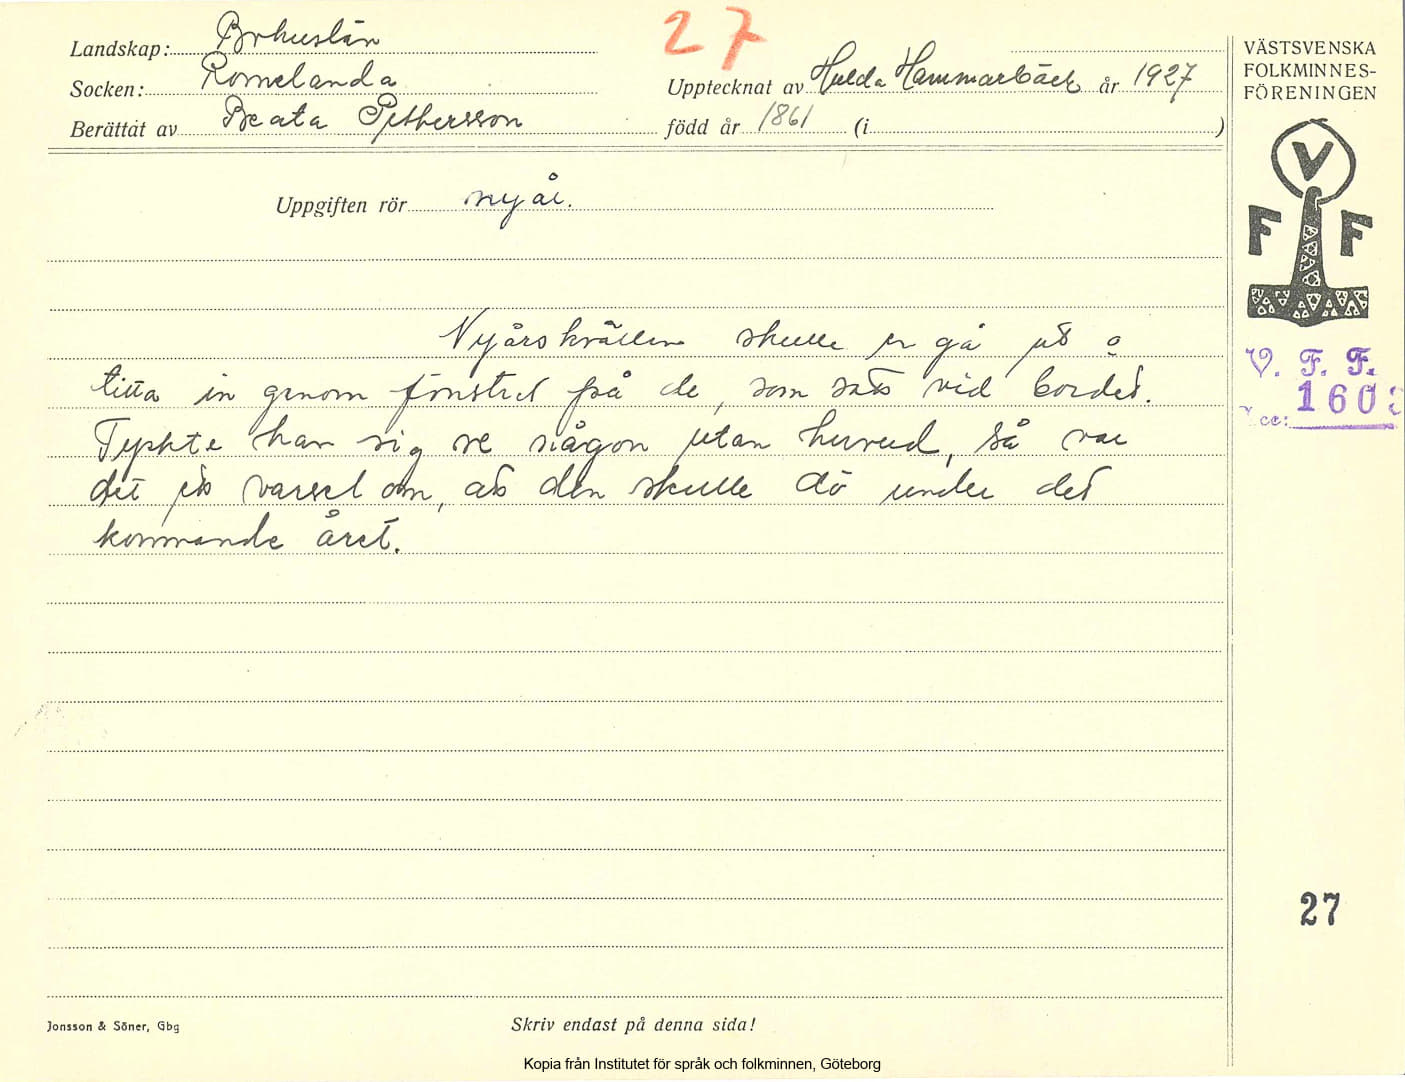 27
Landskap: Bohuslän
Socken: Romelanda
Upptecknat av Hulda Hammarbäck år 1927
Berättat av Beata Pettersson
född år 1861 (i )
Uppgiften rör nyår.
Nyårskvällen skulle en gå ut o
titta in genom fönstret på de, som satt vid bordet.
Tyckte han sig se någon utan huvud, så var
det ett varsel om, att den skulle dö under det
kommande året.
VÄSTSVENSKA
FOLKMINNES-
FÖRENINGEN
V
F F
V. F. F.
1603
27
Jonsson & Söner, Gbg
Skriv endast på denna sida!
Kopia från Institutet för språk och folkminnen, Göteborg